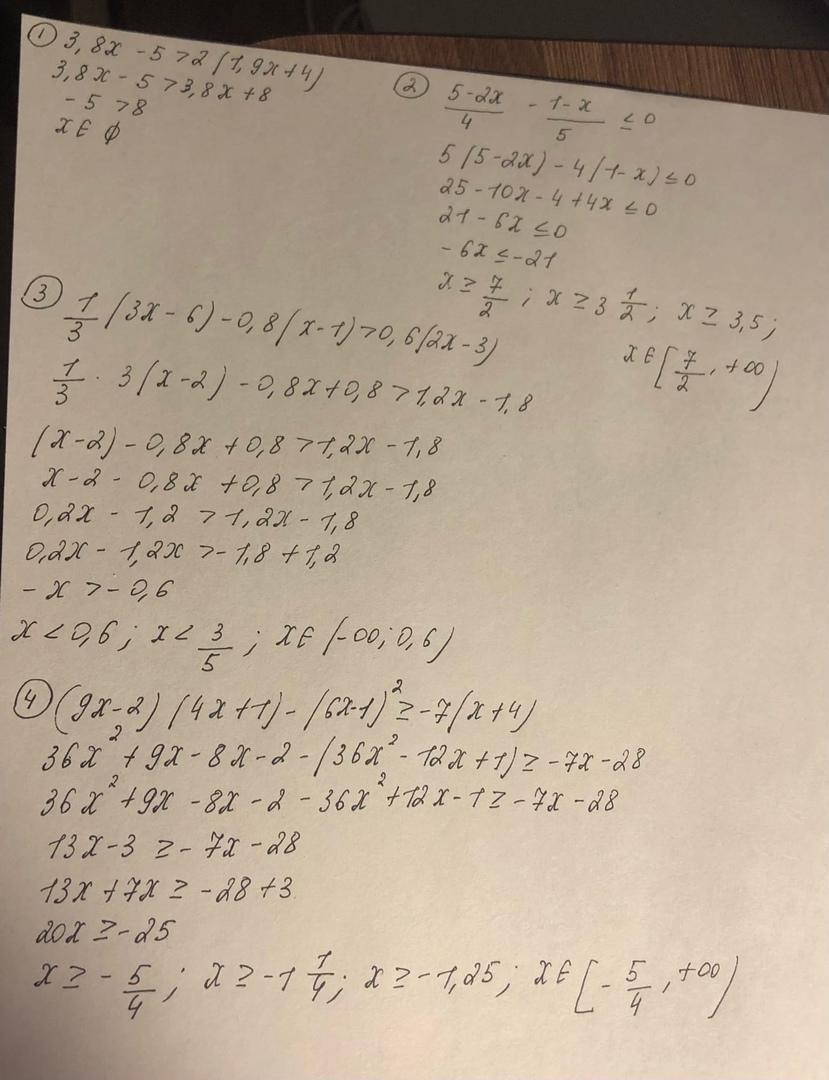 ① 3,8x - 5 > 2(1,9x+4)
3,8x - 5 > 3,8x + 8
- 5 > 8
x ∈ ∅
② (5-2x)/4 - (1-x)/5 ≤ 0
5(5-2x) - 4(1-x) ≤ 0
25 - 10x - 4 + 4x ≤ 0
21 - 6x ≤ 0
- 6x ≤ -21
x ≥ 7/2 ; x ≥ 3 1/2 ; x ≥ 3,5 ;
x ∈ [7/2, +∞)
③ 1/3 (3x - 6) - 0,8(x-1) > 0,6(2x-3)
1/3 · 3(x-2) - 0,8x + 0,8 > 1,2x - 1,8
(x-2) - 0,8x + 0,8 > 1,2x - 1,8
x - 2 - 0,8x + 0,8 > 1,2x - 1,8
0,2x - 1,2 > 1,2x - 1,8
0,2x - 1,2x > -1,8 + 1,2
- x > -0,6
x < 0,6 ; x < 3/5 ; x ∈ (-∞; 0,6)
④ (9x-2) (4x+1) - (6x-1)² ≥ -7(x+4)
36x² + 9x - 8x - 2 - (36x² - 12x + 1) ≥ -7x - 28
36x² + 9x - 8x - 2 - 36x² + 12x - 1 ≥ -7x - 28
13x - 3 ≥ -7x - 28
13x + 7x ≥ -28 + 3
20x ≥ -25
x ≥ - 5/4 ; x ≥ -1 1/4 ; x ≥ -1,25 ; x ∈ [- 5/4, +∞)